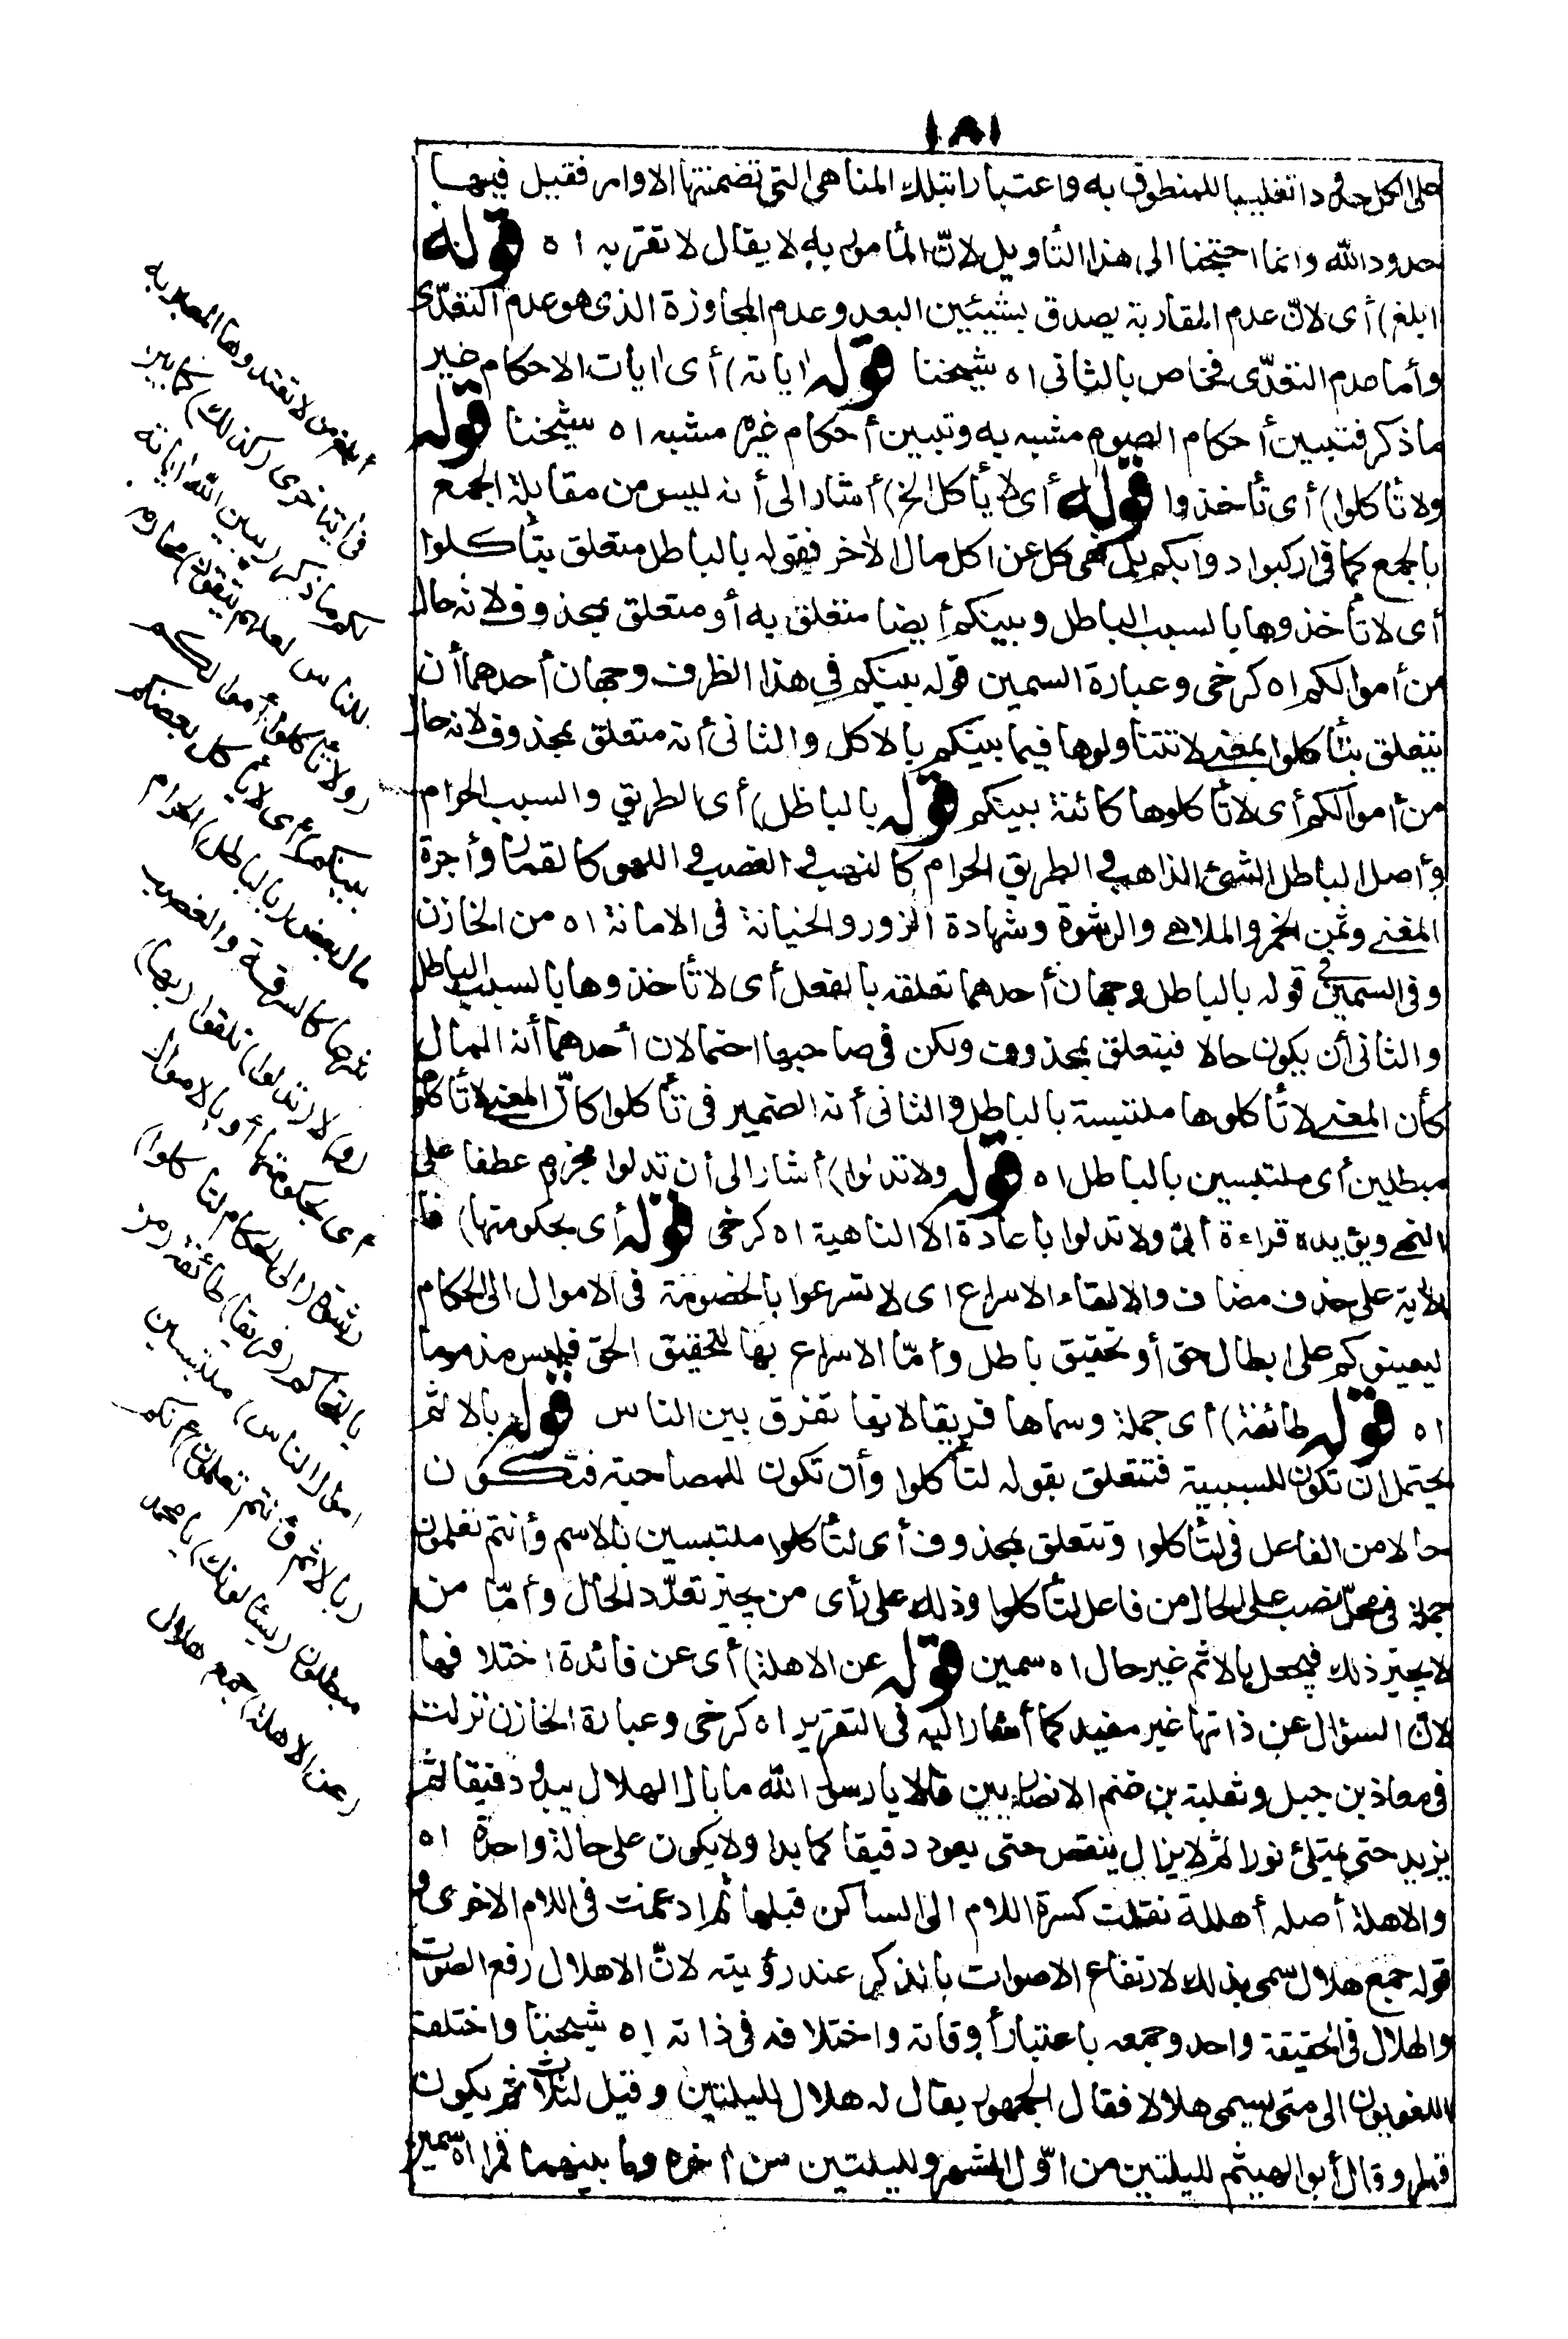 ١٨١
على الكل حدودا تغليبا للمنطوق به واعتبارا بتلك المناهى التى تضمنتها الاوامر فقيل فيها
حدود الله وانما احتجنا الى هذا التأويل لانّ المأمور به لا يقال لا تقربه ا ه قوله
ابلغ) أى لانّ عدم المقاربة يصدق بشيئين البعد وعدم المجاوزة الذى هو عدم التعدّى
وأما عدم التعدّى فخاص بالثانى ا ه شيخنا قوله اياته) أى ايات الاحكام غير
ما ذكر فتبيين أحكام الصوم مشبه به وتبيين أحكام غيره مشبه ا ه شيخنا قوله
ولا تأكلوا) أى تأخذوا قوله أى لا يأكل الخ) أشار الى أنه ليس من مقابلة الجمع
بالجمع كما فى اركبوا دوابكم بل نهى كل عن اكل مال الأخر فقوله بالباطل متعلق بتأكلوا
أى لا تأخذوها بالسبب الباطل وبينكم أيضا متعلق به أو متعلق بمحذوف لانه حال
من أموالكم ا ه كرخى وعبارة السمين قوله بينكم فى هذا الظرف وجهان أحدهما أن
يتعلق بتأكلوا بمعنى لا تتناولوها فيما بينكم بالاكل والثانى أنه متعلق بمحذوف لانه حال
من أموالكم أى لا تأكلوها كائنة بينكم قوله بالباطل) أى الطريق والسبب الحرام
وأصل الباطل الشئ الذاهب فى الطريق الحرام كالنهب فى الغصب فى اللهو كالقمار وأجرة
المغنى وثمن الخمر والملاهى والرشوة وشهادة الزور والخيانة فى الامانة ا ه من الخازن
وفى السمين فى قوله بالباطل وجهان أحدهما تعلقه بالفعل أى لا تأخذوها بالسبب الباطل
والثانى أن يكون حالا فيتعلق بمحذوف ولكن فى صاحبها احتمالان أحدهما أنه المال
كأن المعنى لا تأكلوها ملتبسة بالباطل والثانى أنه الضمير فى تأكلوا كانّ المعنى لا تأكلوها
مبطلين أى ملتبسين بالباطل ا ه قوله ولا تدلوا) أشار الى أن تدلوا مجزوم عطفا على
النهى ويؤيده قراءة أبىّ ولا تدلوا باعادة لا الناهية ا ه كرخى قوله أى بحكومتها) فا
لأية على حذف مضاف والالقاء الاسراع اى لا تسرعوا بالخصومة فى الاموال الى الحكام
ليعينوكم على ابطال حق أو تحقيق باطل وأمّا الاسراع بها لتحقيق الحق فليس مذموما
ا ه قوله طائفة) أى جملة وسماها فريقا لانها تفرق بين الناس قوله بالاثم
يحتمل ان تكون للسببية فتتعلق بقوله لتأكلوا وأن تكون للمصاحبة فتكون
حالا من الفاعل فى لتأكلوا وتتعلق بمحذوف أى لتأكلوا ملتبسين بالاسم وأنتم تعلمون
جملة فى محلّ نصب على الحال من فاعل لتأكلوا وذلك على رأى من يجيز تعدّد الحال وأمّا من
لا يجيز ذلك فيجعل بالاثم غير حال ا ه سمين قوله عن الاهلة) أى عن فائدة اختلافها
لانّ السؤال عن ذاتها غير مفيد كما أشار اليه فى التقرير ا ه كرخى وعبارة الخازن نزلت
فى معاذ بن جبل وثعلبة بن غنم الانصاريين قالا يا رسول الله ما بال الهلال يبدو دقيقا ثم
يزيد حتى يمتلئ نورا ثم لا يزال ينقص حتى يعود دقيقا كما بدا ولا يكون على حالة واحدة ا ه
والاهلة أصله أهللة نقلت كسرة اللام الى الساكن قبلها ثم ادغمت فى اللام الاخرى و
قوله جمع هلال سمى بذلك لارتفاع الاصوات بالذكر عند رؤيته لانّ الاهلال رفع الصوت
والهلال فى الحقيقة واحد وجمعه باعتبار أوقاته واختلافه فى ذاته ا ه شيخنا واختلف
اللغويون الى متى يسمى هلالا فقال الجمهور يقال له هلال لليلتين وقيل لثلاث ثم يكون
قمرا وقال أبوالهيثم لليلتين من اوّل الشهر ولليلتين من أخره وما بينهما قمرا ه سمين
أبلغ من لا تعتدوها المعبر به
فى أية أخرى (كذلك) كما بين
لكم ما ذكر (يبين الله اياته
للناس لعلهم يتقون) محارمه
(ولا تأكلوا أموالكم
بينكم) أى لا يأكل بعضكم
مال بعض (بالباطل) الحرام
شرعا كالسرقة والغصب
(و) لا (تدلوا) تلقوا (بها)
أى بحكومتها أو بالاموال
رشوة (الى الحكام لتأكلوا)
بالتحاكم (فريقا) طائفة (من
اموال الناس) ملتبسين
(بالاثم وأنتم تعلمون) أنكم
مبطلون (يسألونك) يا محمد
(عن الاهلة) جمع هلال